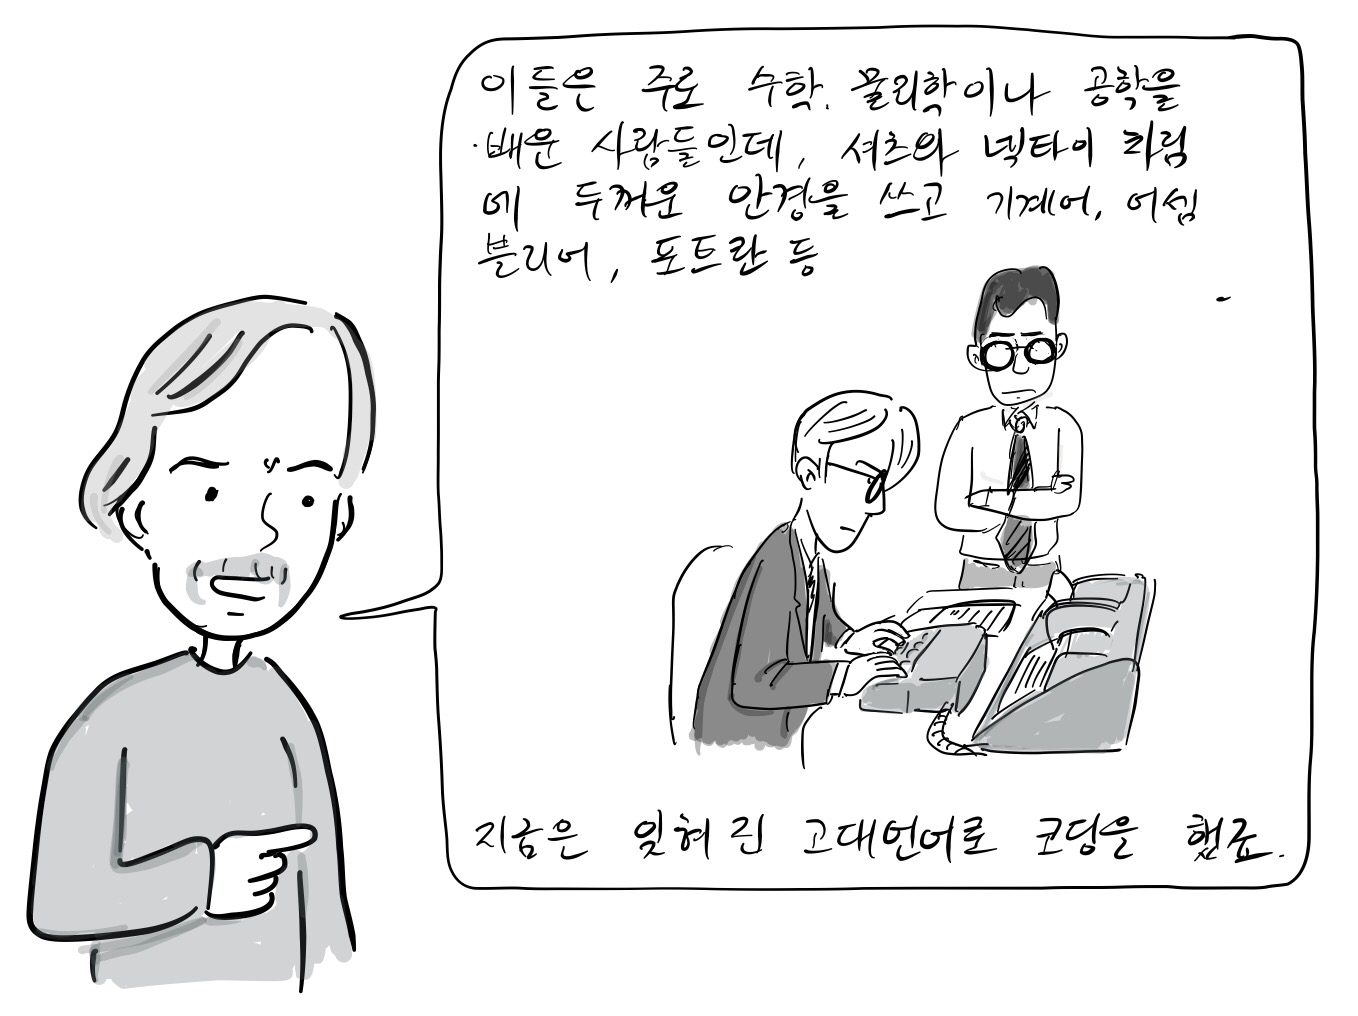 이들은 주로 수학. 물리학이나 공학을
배운 사람들인데, 셔츠와 넥타이 차림
에 두꺼운 안경을 쓰고 기계어, 어셈
블리어, 포트란 등
지금은 잊혀진 고대언어로 코딩을 했죠.